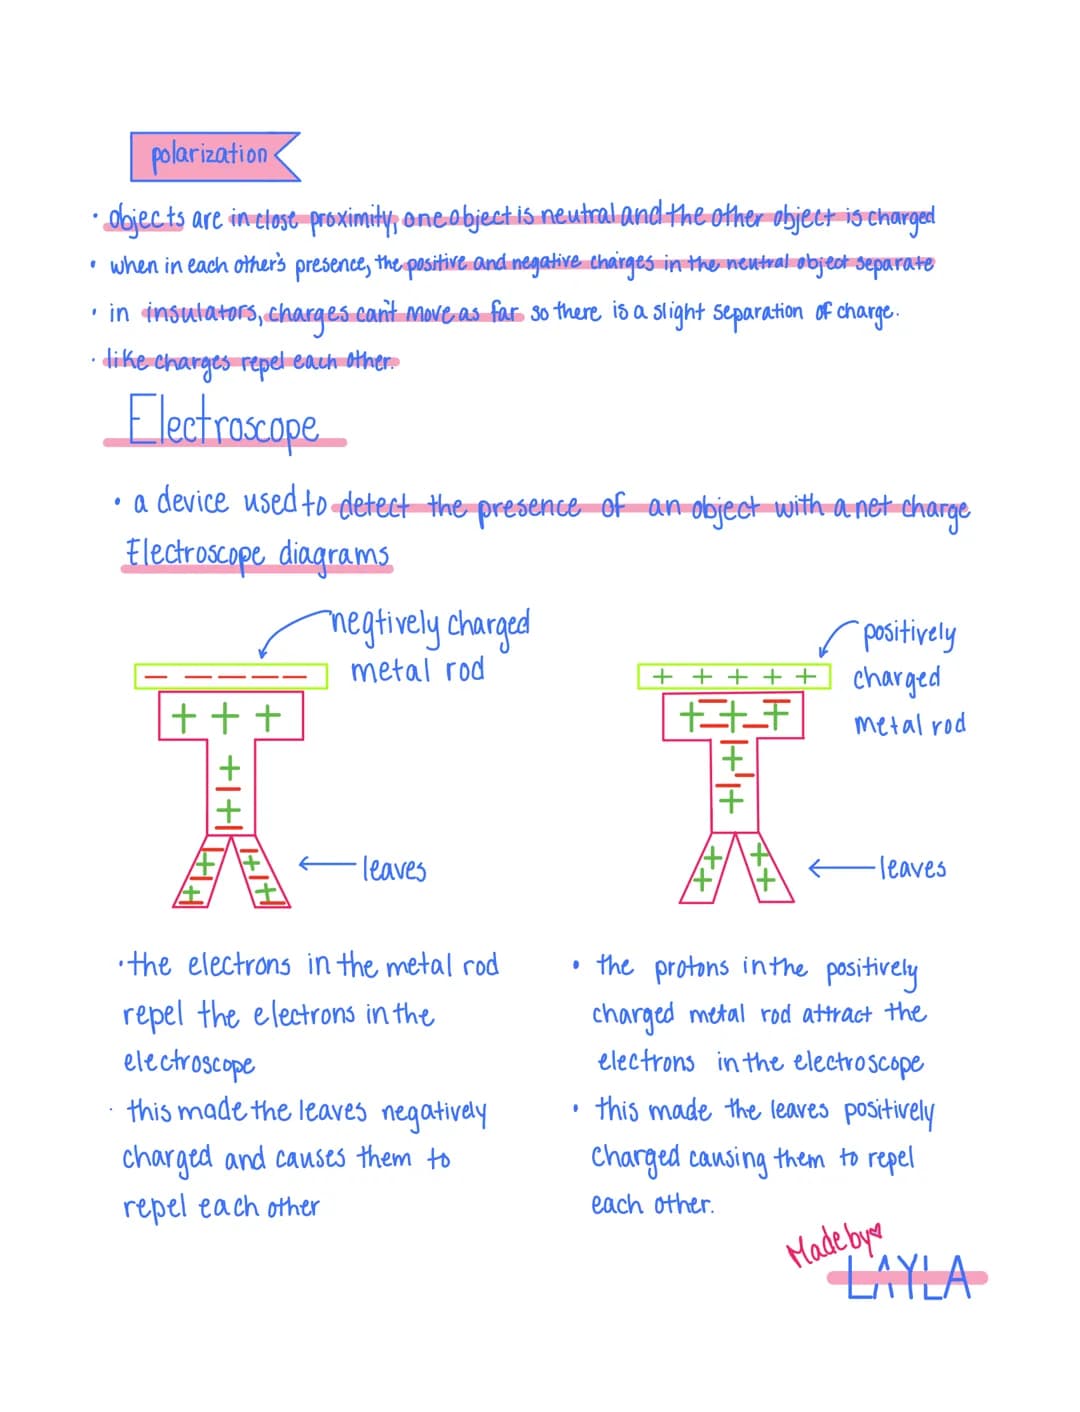 polarization
• objects are in close proximity, one object is neutral and the other object is charged
• when in each other's presence, the positive and negative charges in the neutral object separate
• in insulators, charges can't move as far so there is a slight separation of charge.
• like charges repel each other.
Electroscope
• a device used to detect the presence of an object with a net charge
Electroscope diagrams
negtively charged
metal rod
positively
charged
metal rod
− − − − −
+ + + + +
+ + +
+ + +
leaves
leaves
• the electrons in the metal rod
repel the electrons in the
electroscope
• this made the leaves negatively
charged and causes them to
repel each other
• the protons in the positively
charged metal rod attract the
electrons in the electroscope
• this made the leaves positively
charged causing them to repel
each other.
Made by
LAYLA